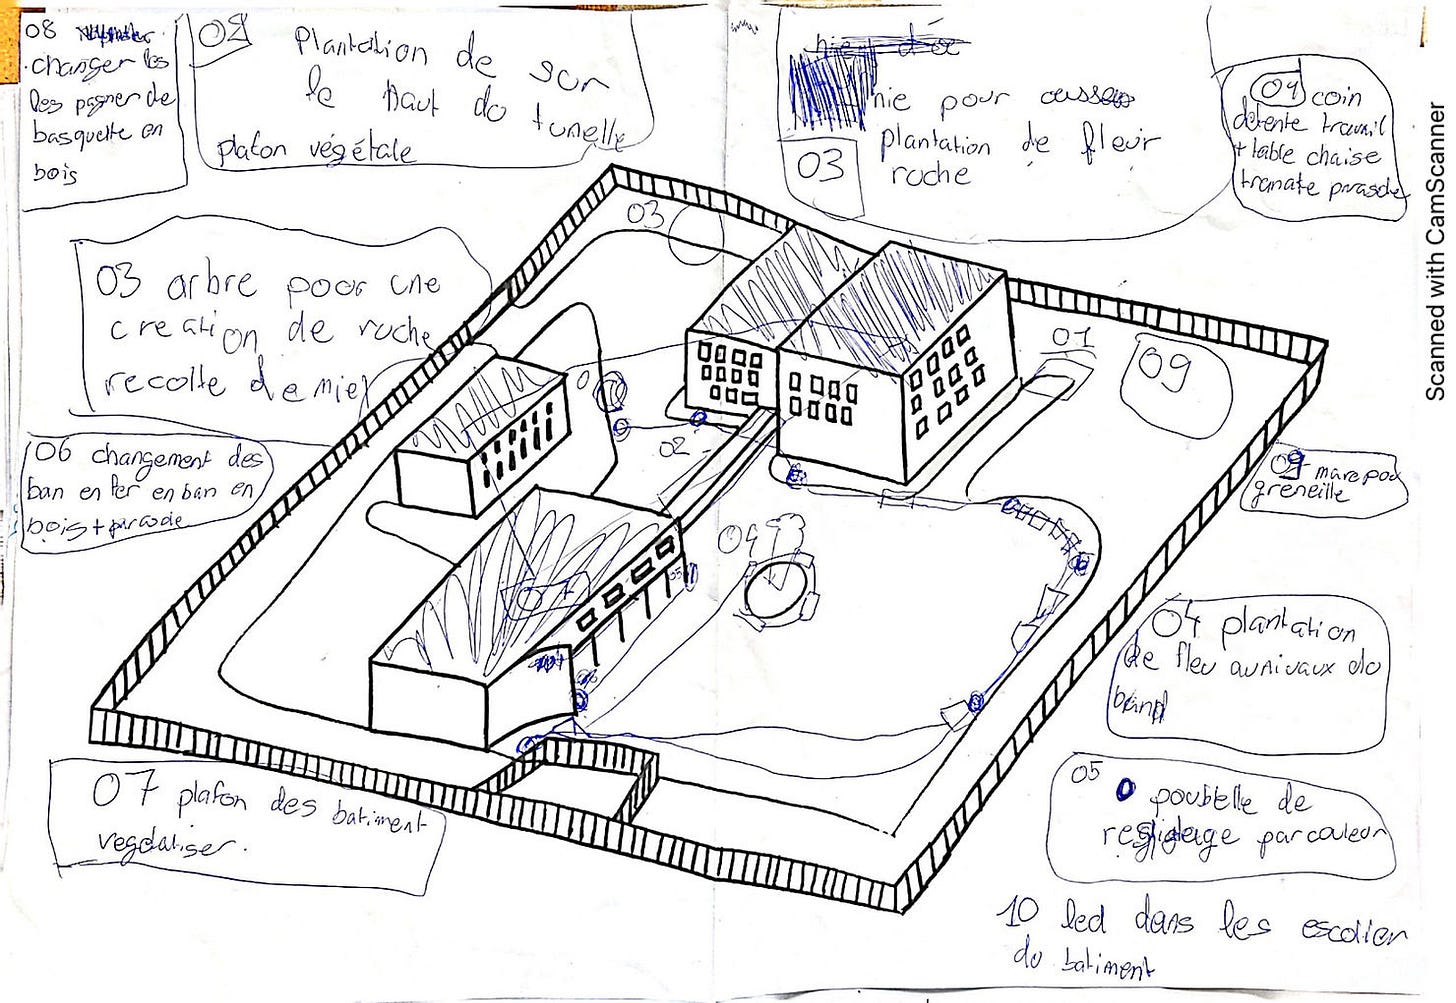 08
changer les
les pagner de
basquette en
bois
02 Plantation de sur
le haut du tunelle
platon végétale
nie pour oussoo
plantation de fleur
ruche
03
01 coin
detente travail
+ table chaise
03 arbre pour une
creation de ruche
recolte de miel
03
01
09
02
04
06 changement des
ban en fer en ban en
bois + parasole
09 mare pour
greneille
04 plantation
de fleu au nivaux du
07 plafon des batiment
vegetaliser.
05
poubelle de
par couleur
10 led dans les escalier
du batiment
Scanned with CamScanner